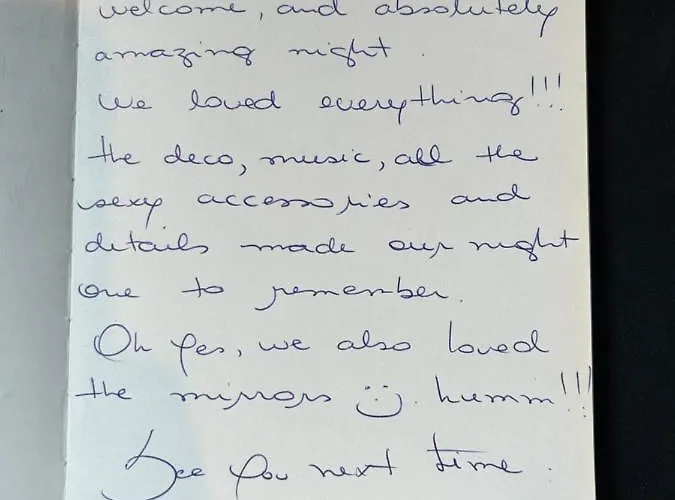 welcome, and absolutely
amazing night.
We loved everything!!!
the deco, music, all the
sexy accessories and
details made our night
one to remember.
Oh yes, we also loved
the mirrors :) humm!!!
See you next time.